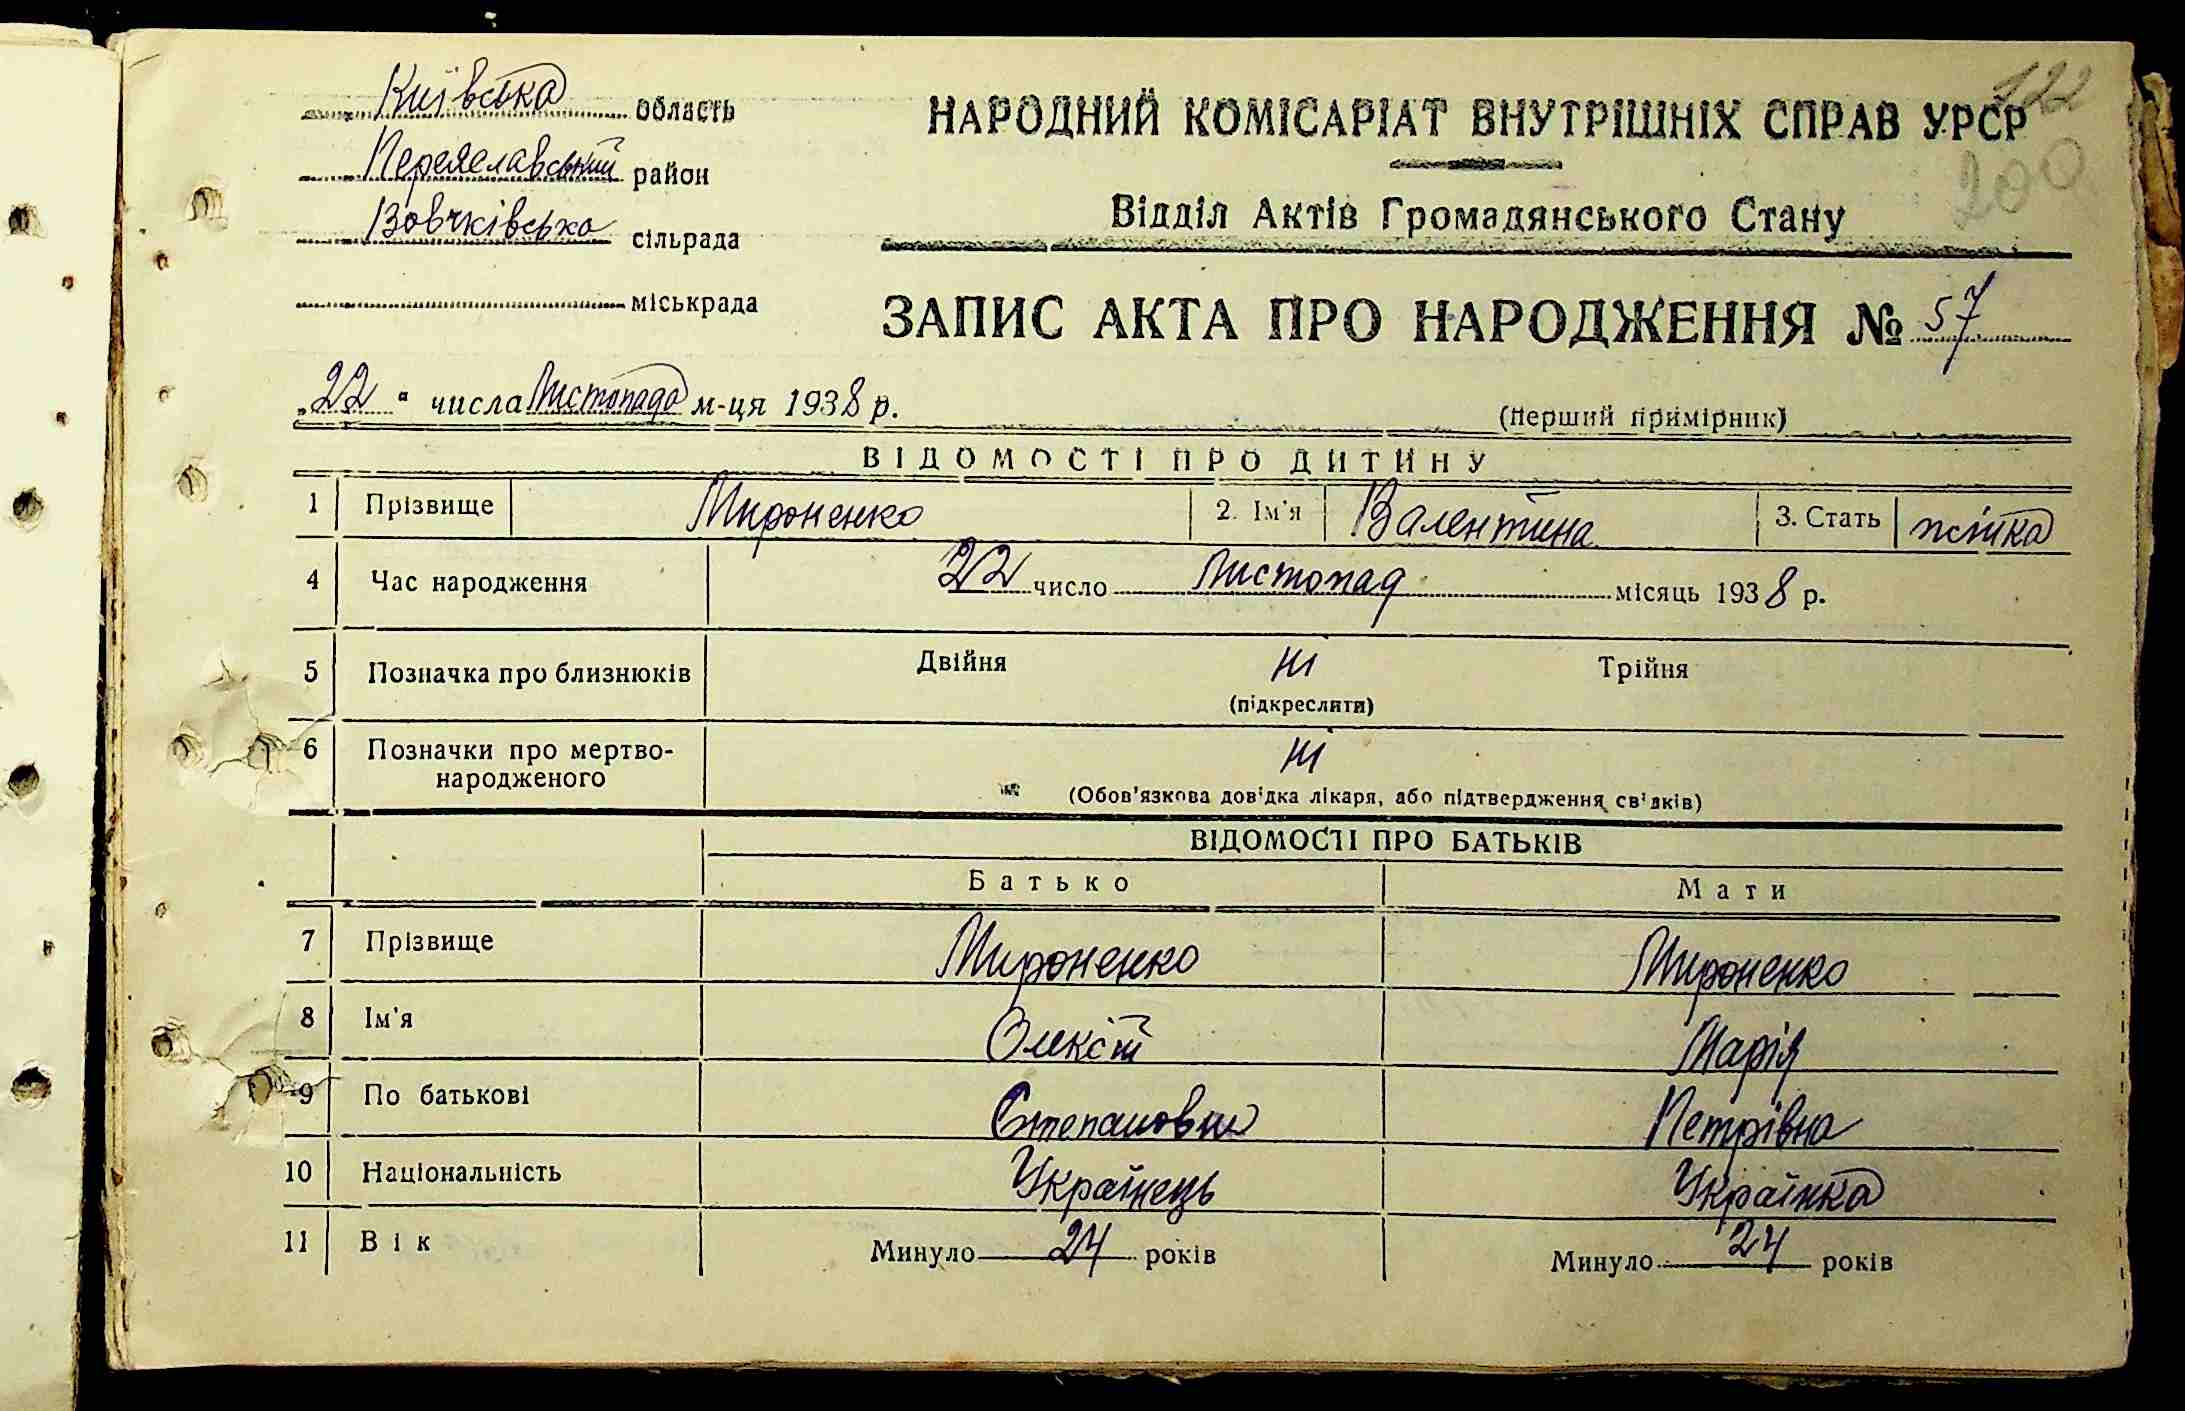 Київська область
Переяславський район
Вовчківська сільрада
міськрада
122
200
НАРОДНИЙ КОМІСАРІАТ ВНУТРІШНІХ СПРАВ УРСР
Відділ Актів Громадянського Стану
ЗАПИС АКТА ПРО НАРОДЖЕННЯ № 57
"22" числа Листопада м-ця 1938 р.
(перший примірник)
ВІДОМОСТІ ПРО ДИТИНУ
1 Прізвище Мироненко 2. Ім'я Валентина 3. Стать жінка
4 Час народження 22 число Листопад місяць 1938 р.
5 Позначка про близнюків Двійня Ні Трійня
(підкреслити)
6 Позначки про мертво- Ні
народженого
(Обов'язкова довідка лікаря, або підтвердження свідків)
ВІДОМОСТІ ПРО БАТЬКІВ
Батько Мати
7 Прізвище Мироненко Мироненко
8 Ім'я Марія
9 По батькові Петрівна
10 Національність Українець Українка
11 Вік Минуло 24 років Минуло 24 років